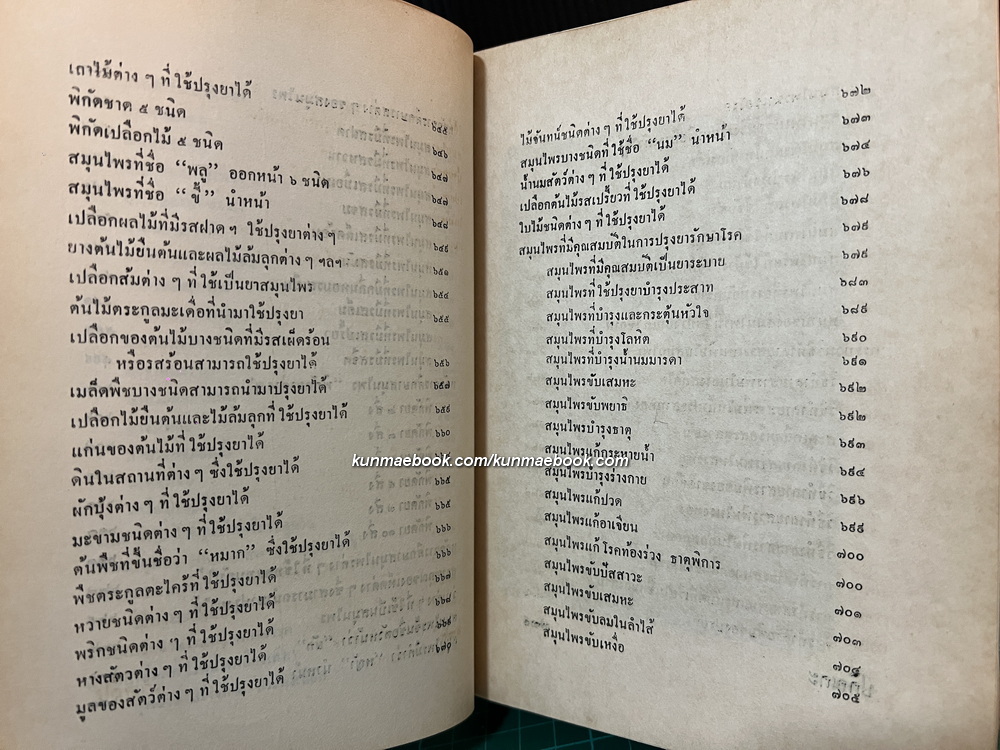 เถาไม้ต่าง ๆ ที่ใช้ปรุงยาได้
พิกัดชาด ๕ ชนิด
พิกัดเปลือกไม้ ๕ ชนิด
สมุนไพรที่ชื่อ “พลู” ออกหน้า ๖ ชนิด
สมุนไพรที่ชื่อ “ขี้” นำหน้า
เปลือกผลไม้ที่มีรสฝาด ฯ ใช้ปรุงยาต่าง ๆ
ยางต้นไม้ยืนต้นและผลไม้ล้มลุกต่าง ๆ ฯลฯ
เปลือกส้มต่าง ๆ ที่ใช้เป็นยาสมุนไพร
ต้นไม้ตระกูลมะเดื่อที่นำมาใช้ปรุงยา
เปลือกของต้นไม้บางชนิดที่มีรสเผ็ดร้อน
หรือรสร้อนสามารถใช้ปรุงยาได้
เมล็ดพืชบางชนิดสามารถนำมาปรุงยาได้
เปลือกไม้ยืนต้นและไม้ล้มลุกที่ใช้ปรุงยาได้
แก่นของต้นไม้ที่ใช้ปรุงยาได้
ดินในสถานที่ต่าง ๆ ซึ่งใช้ปรุงยาได้
ผักบุ้งต่าง ๆ ที่ใช้ปรุงยาได้
มะขามชนิดต่าง ๆ ที่ใช้ปรุงยาได้
ต้นพืชที่ขึ้นชื่อว่า “หมาก” ซึ่งใช้ปรุงยาได้
พืชตระกูลตะไคร้ที่ใช้ปรุงยาได้
หวายชนิดต่าง ๆ ที่ใช้ปรุงยาได้
พริกชนิดต่าง ๆ ที่ใช้ปรุงยาได้
หางสัตว์ต่าง ๆ ที่ใช้ปรุงยาได้
มูลของสัตว์ต่าง ๆ ที่ใช้ปรุงยาได้
๖๔๕
๖๔๖
๖๔๗
๖๔๗
๖๔๘
๖๔๙
๖๕๑
๖๕๔
๖๕๕
๖๕๖
๖๕๗
๖๕๙
๖๖๐
๖๖๕
๖๖๕
๖๖๖
๖๖๖
๖๖๗
๖๖๘
๖๖๙
๖๗๐
ไม้จันทน์ชนิดต่าง ๆ ที่ใช้ปรุงยาได้
สมุนไพรบางชนิดที่ใช้ชื่อ “นม” นำหน้า
น้ำนมสัตว์ต่าง ๆ ที่ใช้ปรุงยาได้
เปลือกต้นไม้รสเปรี้ยวที่ใช้ปรุงยาได้
ใบไม้ชนิดต่าง ๆ ที่ใช้ปรุงยาได้
สมุนไพรที่มีคุณสมบัติในการปรุงยารักษาโรค
สมุนไพรที่มีคุณสมบัติเป็นยาระบาย
สมุนไพรที่ใช้ปรุงยาบำรุงประสาท
สมุนไพรที่บำรุงและกระตุ้นหัวใจ
สมุนไพรที่บำรุงโลหิต
สมุนไพรที่บำรุงน้ำนมมารดา
สมุนไพรขับเสมหะ
สมุนไพรขับพยาธิ
สมุนไพรบำรุงธาตุ
สมุนไพรแก้กระหายน้ำ
สมุนไพรบำรุงร่างกาย
สมุนไพรแก้ปวด
สมุนไพรแก้อาเจียน
สมุนไพรแก้โรคท้องร่วง ธาตุพิการ
สมุนไพรขับปัสสาวะ
สมุนไพรขับเสมหะ
สมุนไพรขับลมในลำไส้
สมุนไพรขับเหงื่อ
๖๗๒
๖๗๓
๖๗๔
๖๗๖
๖๗๘
๖๗๙
๖๗๙
๖๘๓
๖๘๙
๖๙๐
๖๙๑
๖๙๒
๖๙๒
๖๙๓
๖๙๔
๖๙๖
๖๙๙
๗๐๐
๗๐๐
๗๐๑
๗๐๓
๗๐๔
๗๐๕
kunmaebook.com/kunmaebook.com